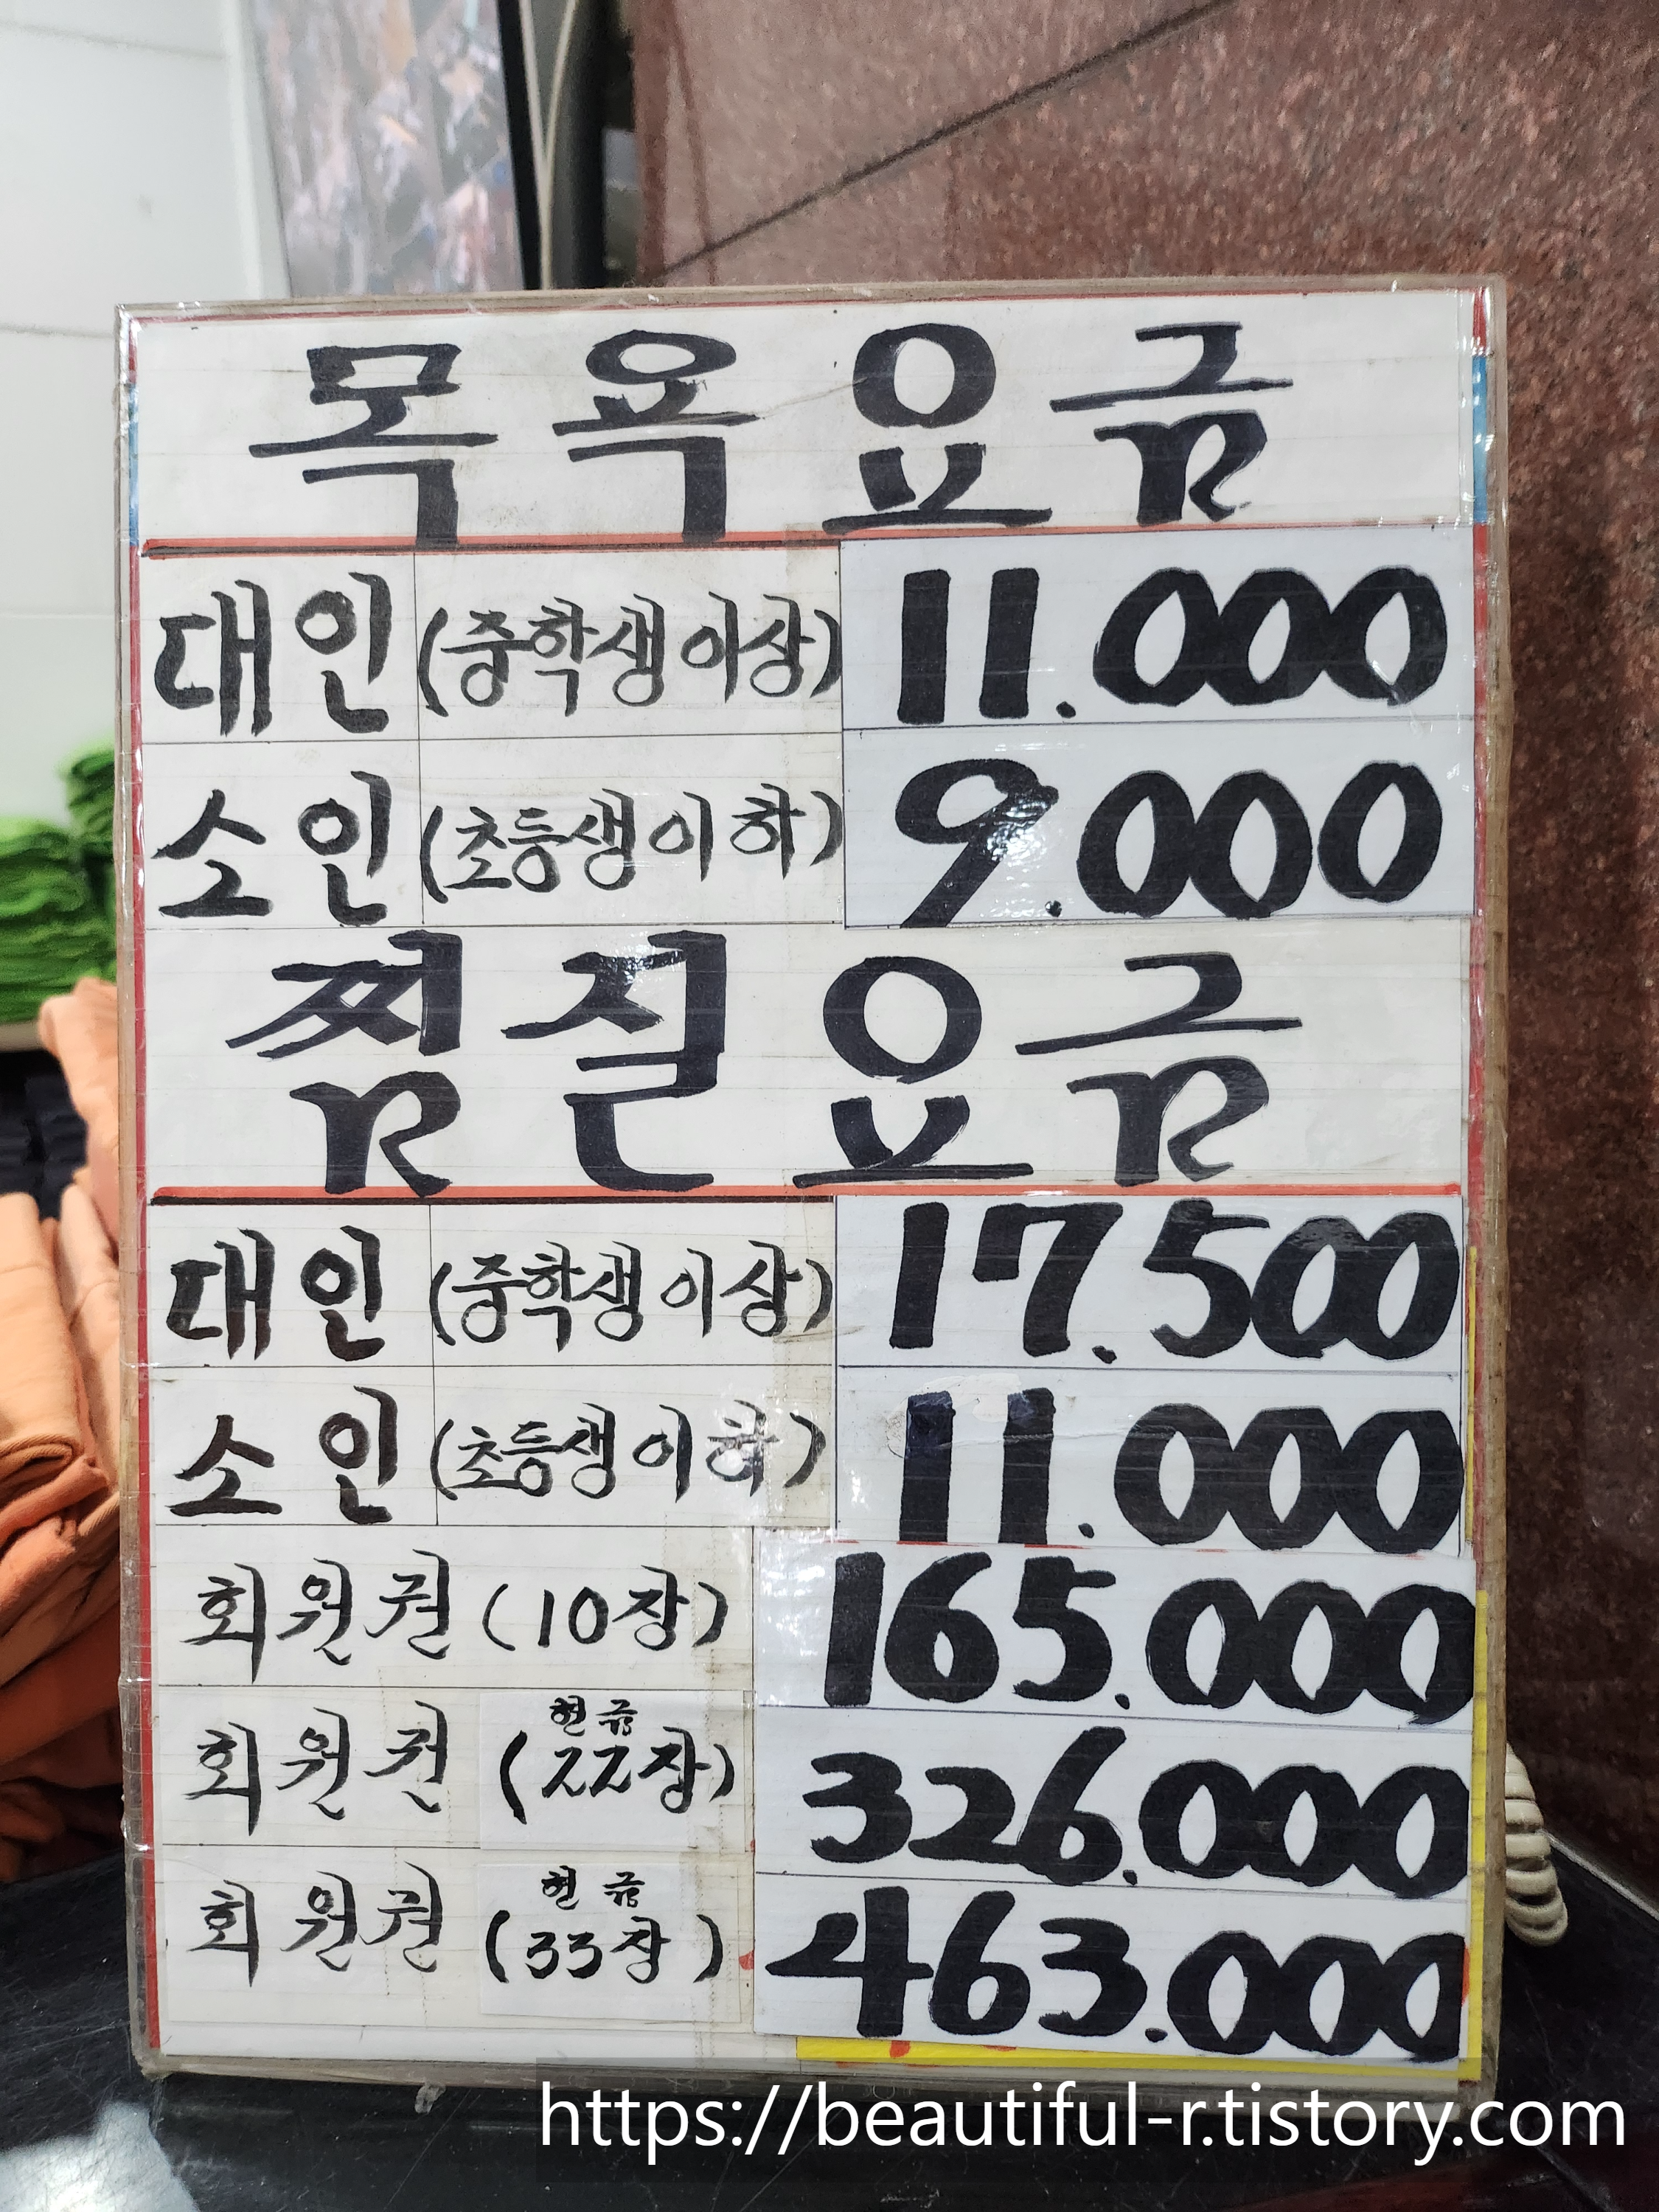 목욕요금
대인 (중학생이상) 11.000
소인 (초등생이하) 9.000
찜질요금
대인 (중학생이상) 17.500
소인 (초등생이하) 11.000
회원권 (10장) 165.000
현금
회원권 (22장) 326.000
현금
회원권 (33장) 463.000
https://beautiful-r.tistory.com